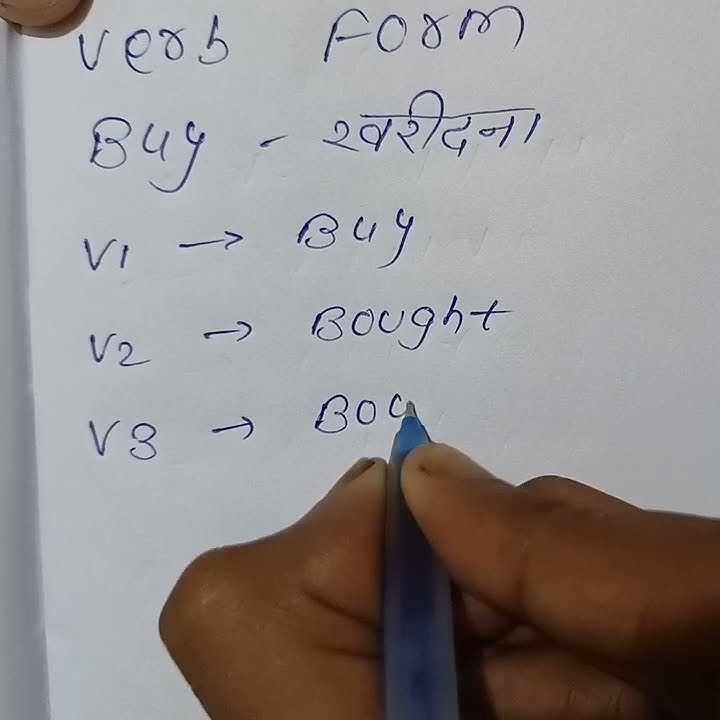 Verb Form
Buy - खरीदना
V1 → Buy
V2 → Bought
V3 → Bou